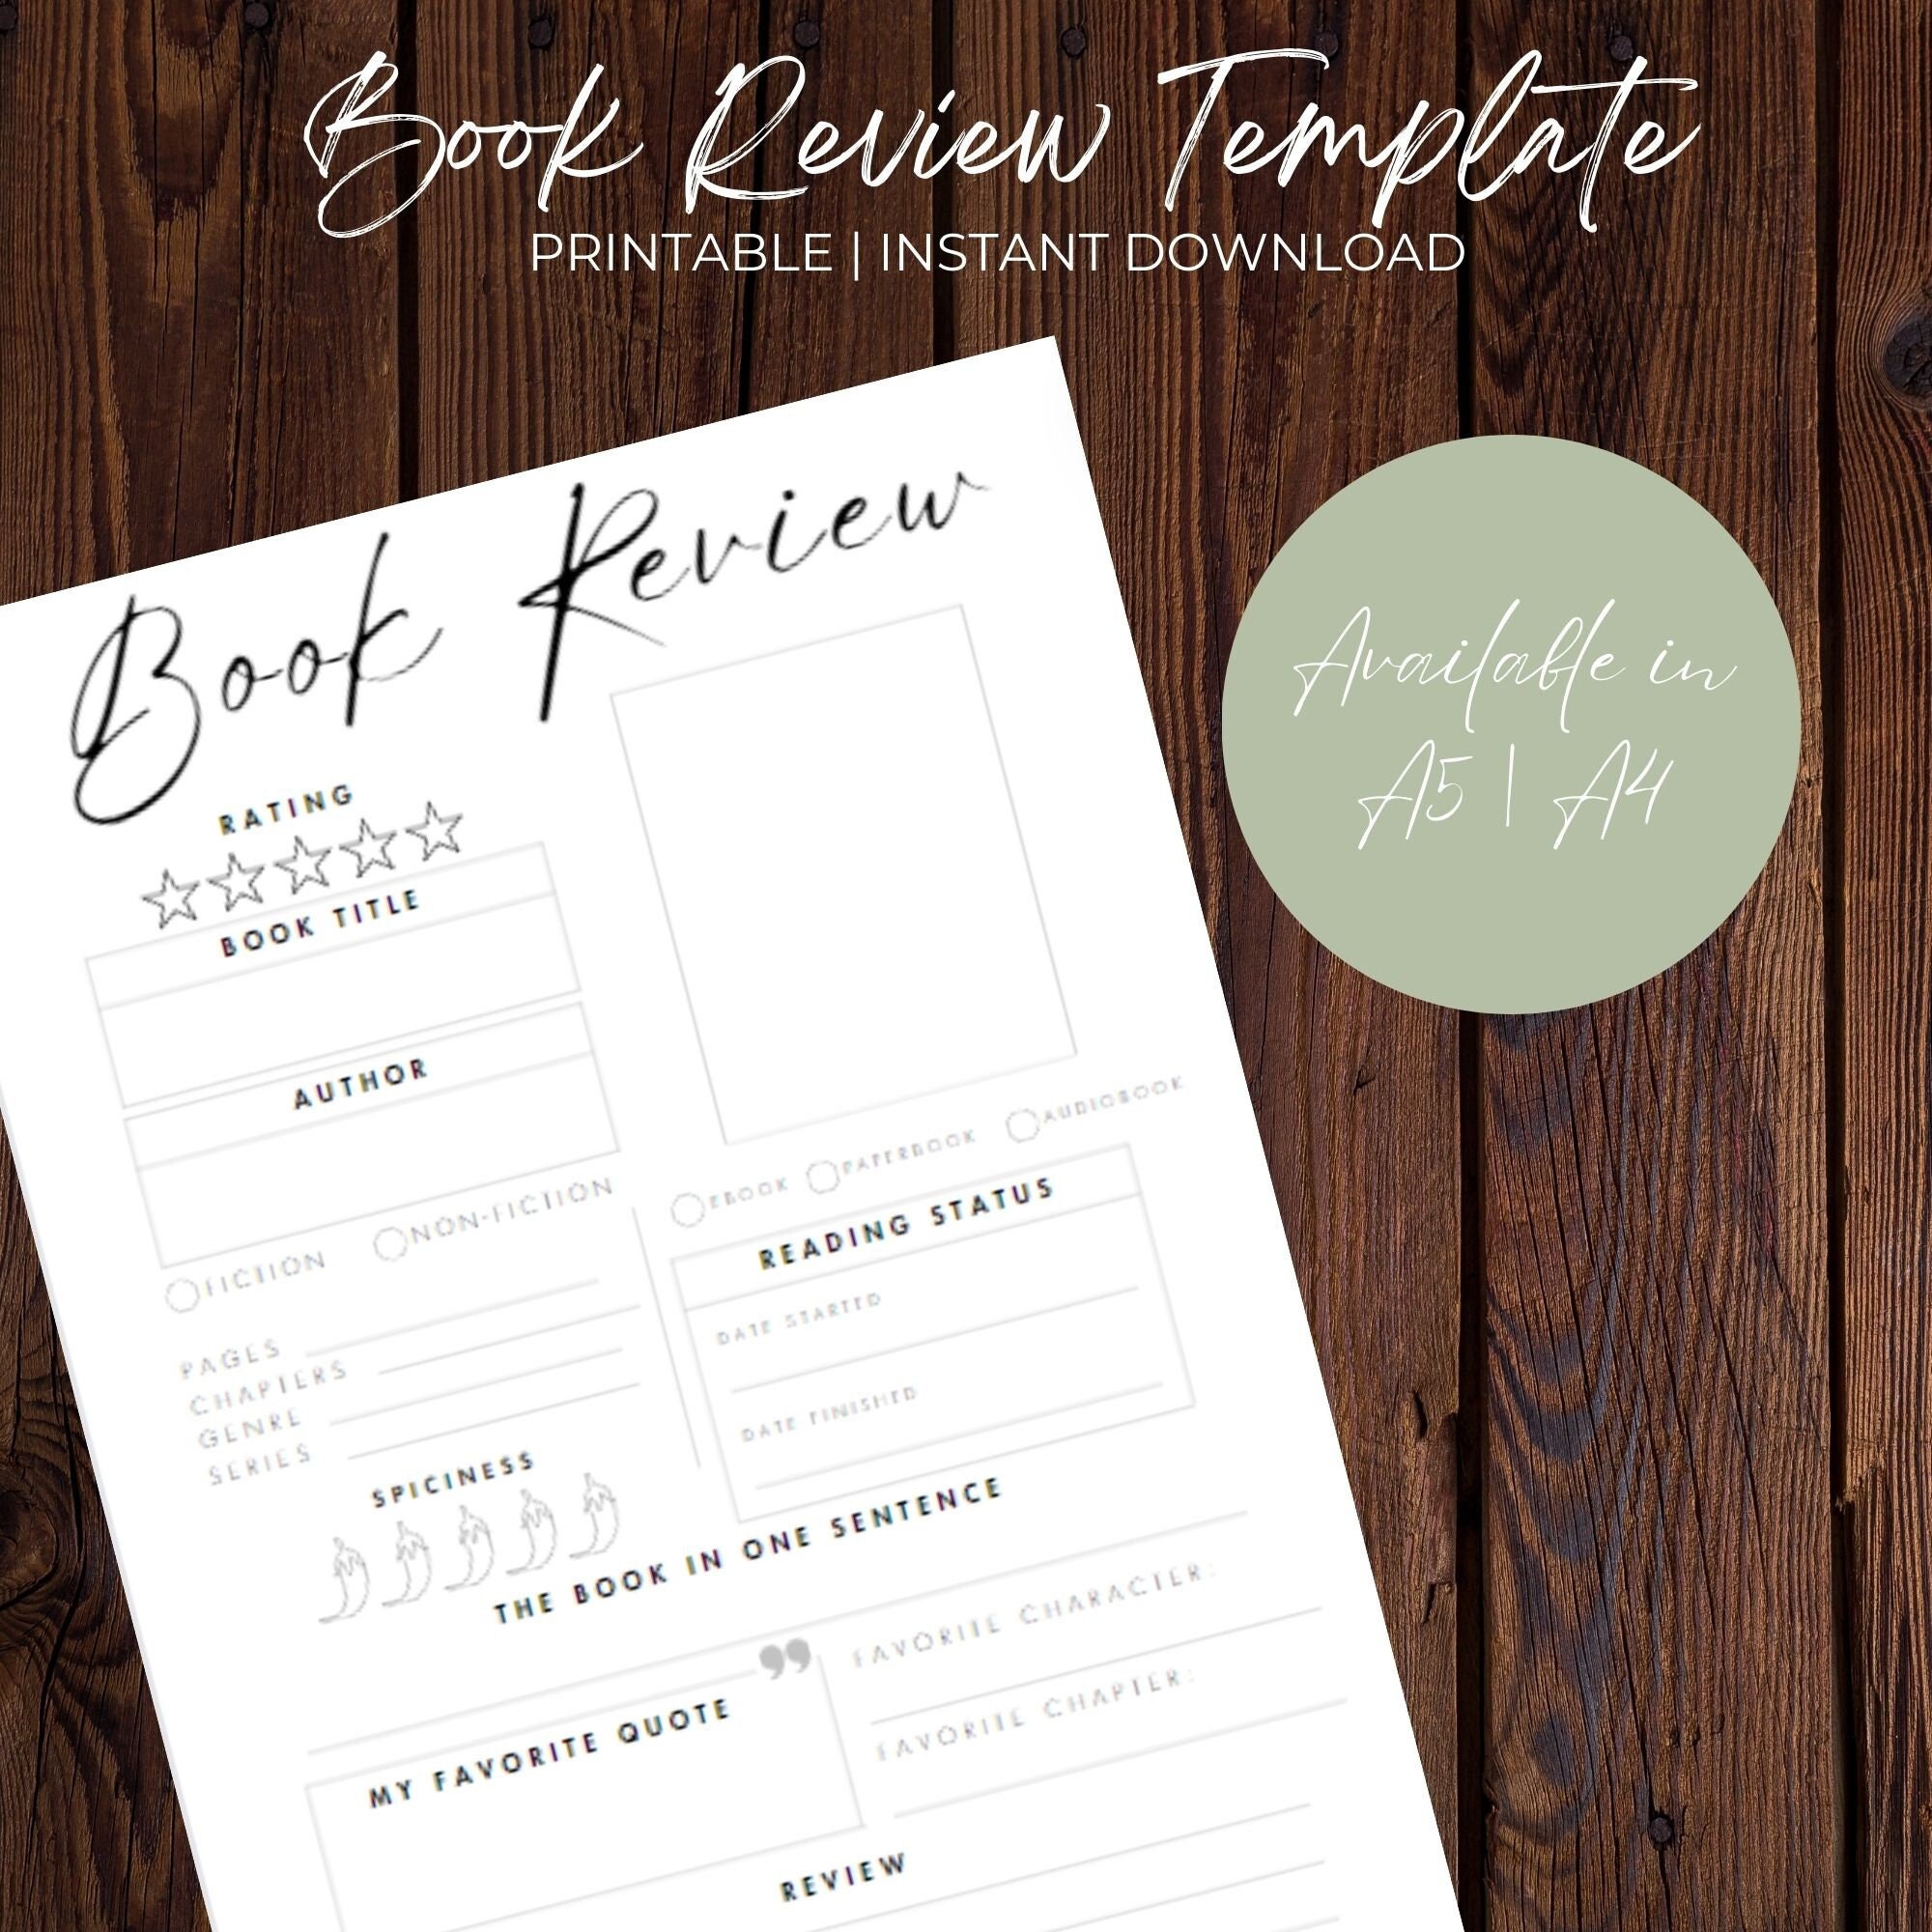 Book Review Template
PRINTABLE | INSTANT DOWNLOAD
Available in
A5 | A4
Book Review
RATING
BOOK TITLE
AUTHOR
FICTION NON-FICTION
PAGES
CHAPTERS
GENRE
SERIES
SPICINESS
EBOOK PAPERBOOK AUDIOBOOK
READING STATUS
DATE STARTED
DATE FINISHED
THE BOOK IN ONE SENTENCE
MY FAVORITE QUOTE
”
FAVORITE CHARACTER:
FAVORITE CHAPTER:
REVIEW